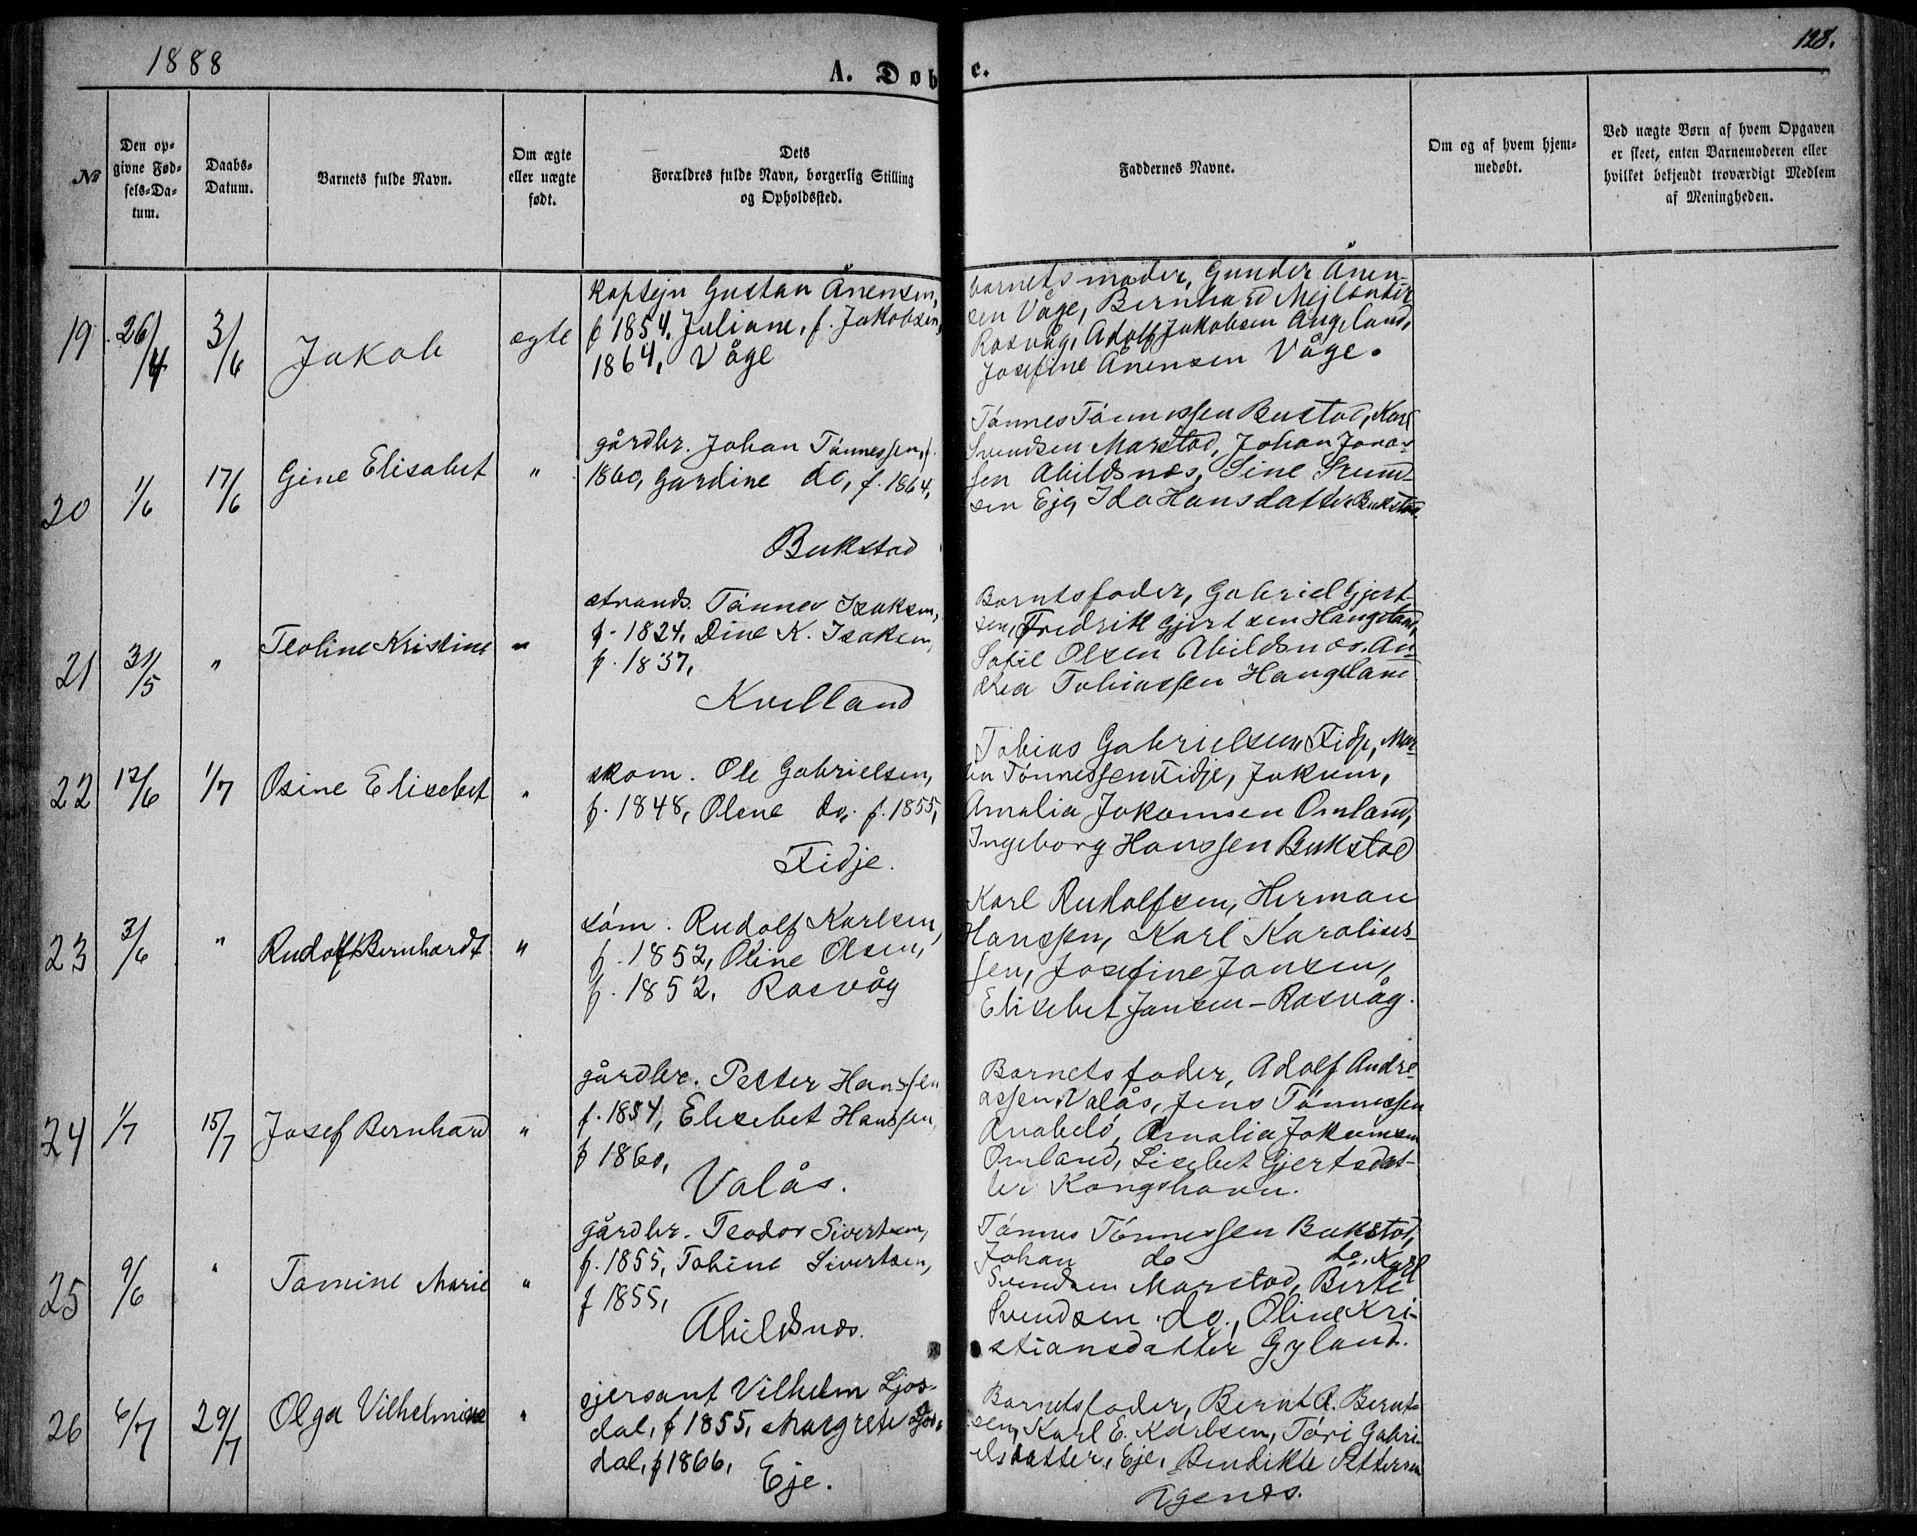 1888
128.
A. Døbte.
№
Den op-
givne Fød-
sels-Da-
tum.
Daabs-
Datum.
Barnets fulde Navn.
Om ægte
eller uægte
født.
Dets
Forældres fulde Navn, borgerlig Stilling
og Opholdssted.
Faddernes Navne.
Om og af hvem hjem-
medøbt.
Ved uægte Børn af hvem Opgaven
er skeet, enten Barnemoderen eller
hvilket bekjendt troværdigt Medlem
af Menigheden.
19. 26/4 3/6 Jakob ægte
kaptejn Gustav Ånensen,
f 1854, Juliane, f. Jakobsen,
1864, Våge
barnets moder, Gunder Ånen-
sen Våge, Bernhard Mejlænder
Rasvåg, Adolf Jakobsen Angeland,
Josefine Ånensen Våge.
20 1/6 17/6 Gine Elisabet "
gårdbr. Johan Tønnessen, f.
1860, Gurdine do, f. 1864,
Bukstad
Tønnes Tønnessen Bustad, Karl
Svendsen Marstad, Johan Jona-
sen Abildsnæs, Sine Svend-
sen Eje, Ida Hansdatter Bukstad.
21 31/5 " Teoline Kristine "
strands. Tønnes Isaksen,
f. 1824, Dine K. Isaksen,
f. 1837,
Kvilland
Barntsfader, Gabriel Gjert-
sen, Fredrik Gjertsen Haugeland,
Sofie Olsen Abildsnæs, An-
drea Tobiassen Haugeland
22 12/6 1/7 Osine Elisebet "
skom. Ole Gabrielsen,
f. 1848, Olene do, f. 1855,
Fidje.
Tobias Gabrielsen Fidje, Mar-
tin Tønnessen Fidje, Jokum,
Amalia Jokomsen Omland,
Ingeborg Hanssen Bukstad
23 3/6 " Rudolf Bernhardt "
søm. Rudolf Karlsen,
f. 1852, Oline Olsen,
f. 1852, Rasvåg
Karl Rudolfsen, Herman
Hanssen, Karl Karolius-
sen, Josefine Jansen,
Elisebet Jansen - Rasvåg.
24 1/7 15/7 Josef Bernhard "
gårdbr. Petter Hanssen
f. 1854, Elisebet Hanssen,
f 1860,
Valås.
Barnets fader, Adolf Andre-
assen, Valås, Jens Tønnessen
Anabelø, Amalia Jokumsen
Omland, Lisebet Gjertsdat-
ter Kongshavn.
25 9/6 " Tomine Marie "
gårdbr. Teodor Sivertsen,
f. 1855, Tobine Sivertsen,
f 1855,
Abildsnæs.
Tønnes Tønnessen Bukstad,
Johan do do, Karl
Svendsen Marstad, Berte
Svendsen do, Oline Kri-
stiansdatter Gyland.
26 6/7 29/7 Olga Vilhelmine "
sjersant Vilhelm Ljos-
dal, f 1855, Margrete Ljos-
dal, f 1866,
Eje.
Barnetsfader, Bernt A. Bernt-
sen, Karl E. Karlsen, Tøri Gabri-
elsdatter, Eje, Bendikte Pettersen
Agenæs.